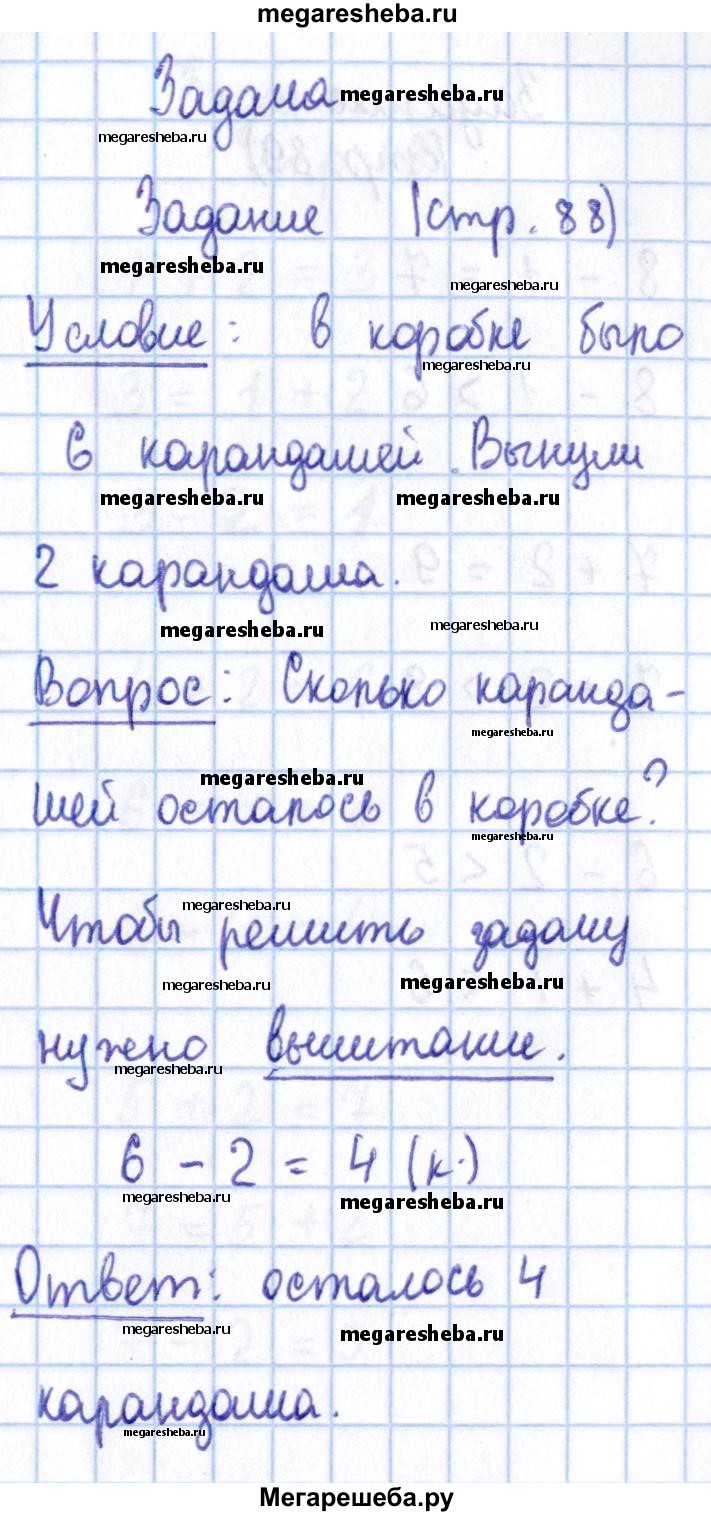 megaresheba.ru
Задача megaresheba.ru
megaresheba.ru
Задание (стр. 88)
megaresheba.ru megaresheba.ru
Условие: в коробке было
megaresheba.ru
6 карандашей. Вынули
megaresheba.ru megaresheba.ru
2 карандаша.
megaresheba.ru megaresheba.ru
Вопрос: Сколько каранда-
megaresheba.ru
megaresheba.ru
шей осталось в коробке?
megaresheba.ru
megaresheba.ru
Чтобы решить задачу
megaresheba.ru megaresheba.ru
нужно вычитание.
megaresheba.ru
6 - 2 = 4 (к.)
megaresheba.ru megaresheba.ru
Ответ: осталось 4
megaresheba.ru megaresheba.ru
карандаша.
megaresheba.ru
Мегарешеба.ру